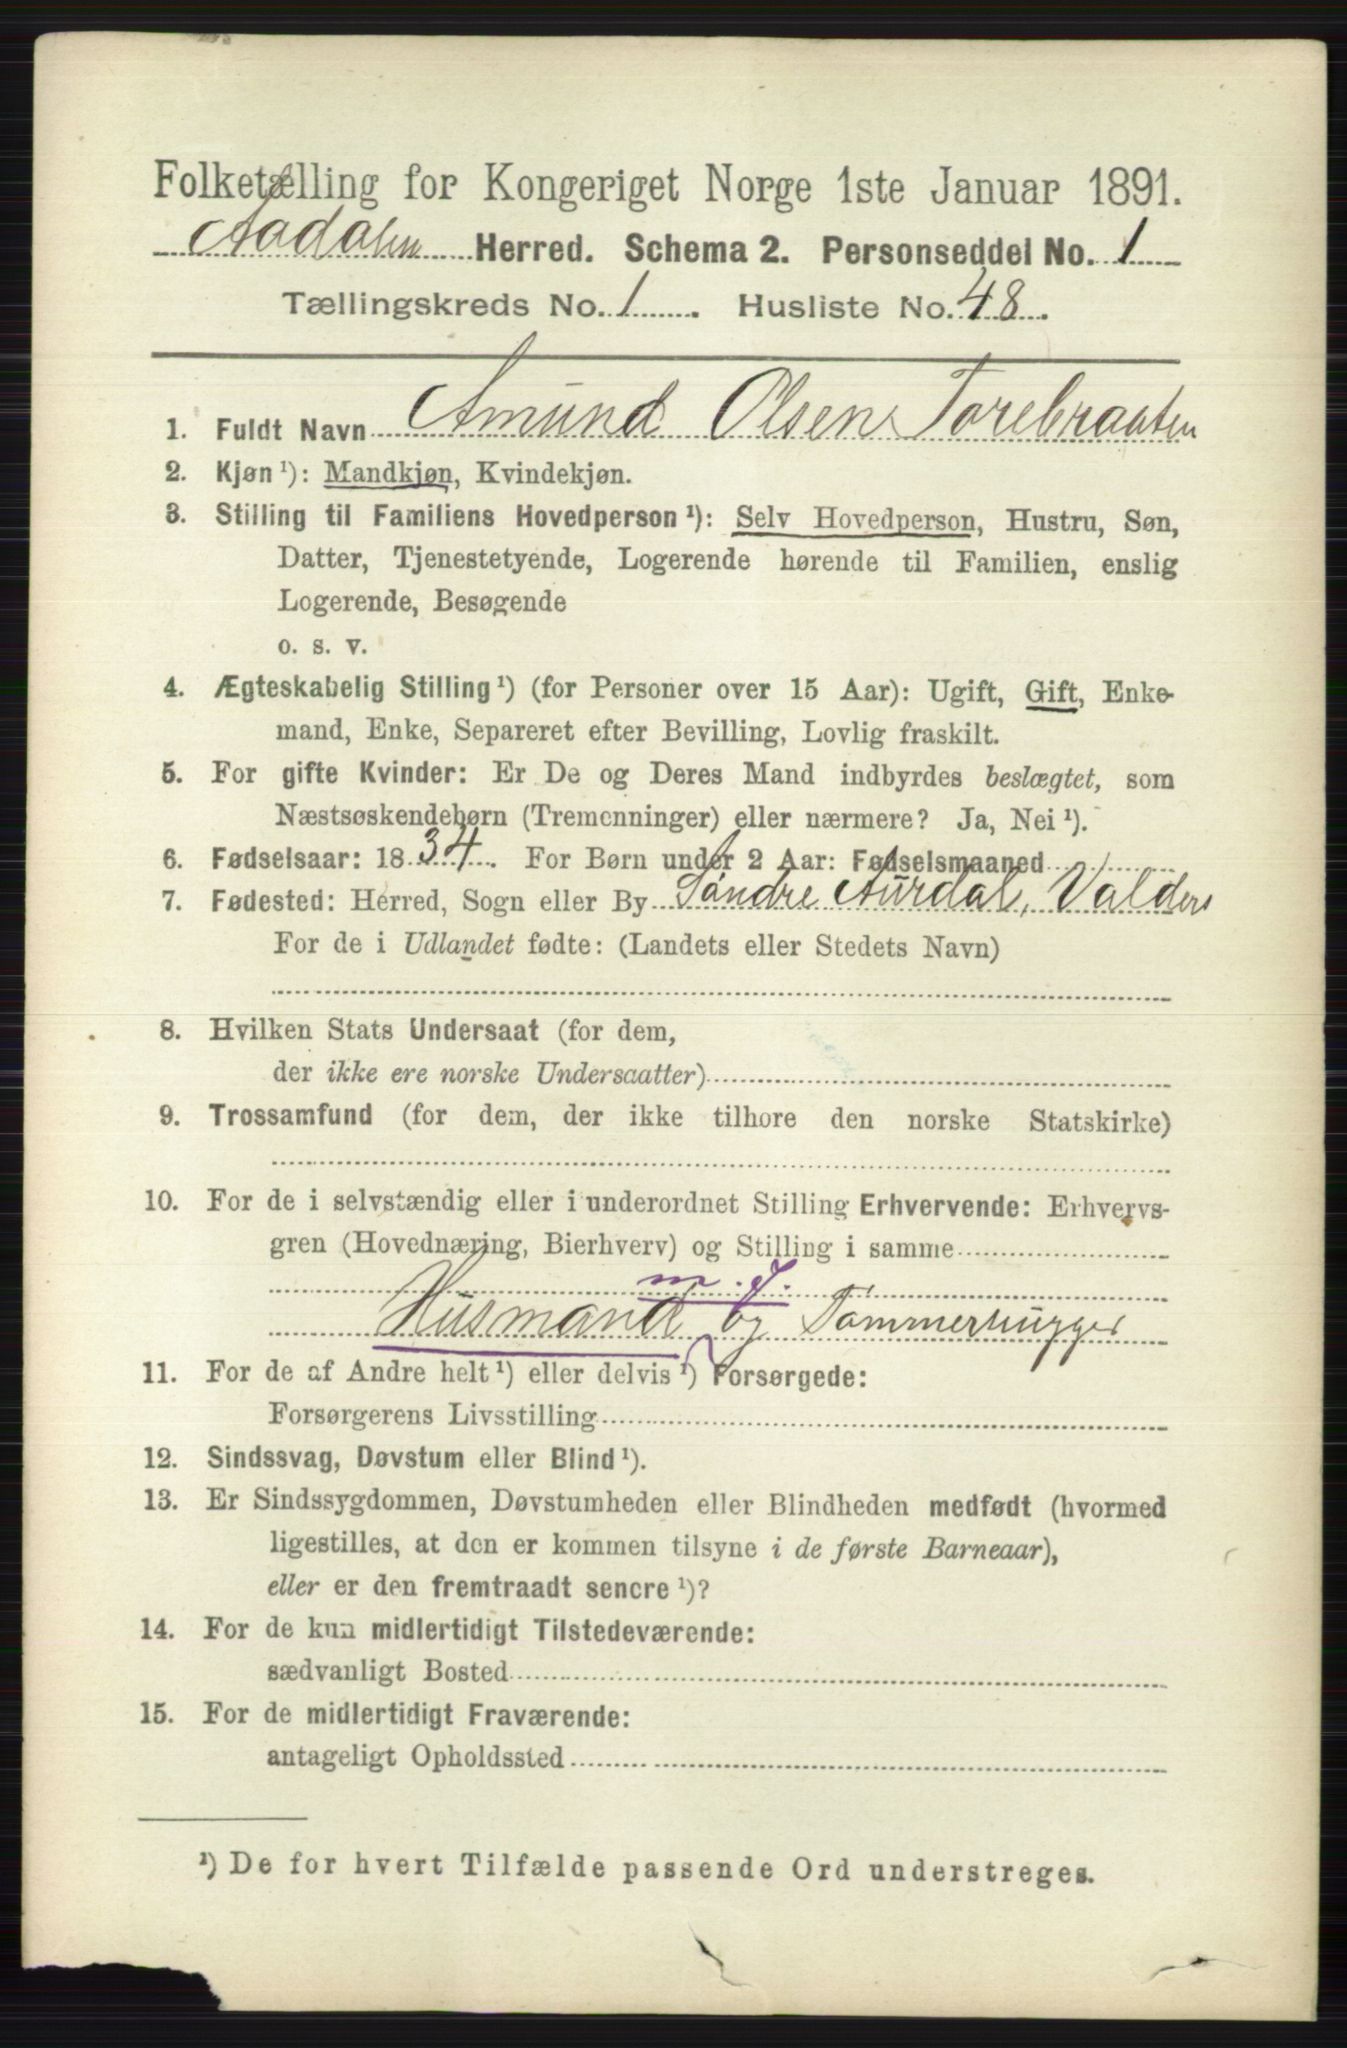 Folketælling for Kongeriget Norge 1ste Januar 1891.
Aadalen Herred. Schema 2. Personseddel No. 1
Tællingskreds No. 1. Husliste No. 48.
1. Fuldt Navn Amund Olsen Torebraaten
2. Kjøn ¹): Mandkjøn, Kvindekjøn.
3. Stilling til Familiens Hovedperson ¹): Selv Hovedperson, Hustru, Søn,
Datter, Tjenestetyende, Logerende hørende til Familien, enslig
Logerende, Besøgende
o. s. v.
4. Ægteskabelig Stilling ¹) (for Personer over 15 Aar): Ugift, Gift, Enke-
mand, Enke, Separeret efter Bevilling, Lovlig fraskilt.
5. For gifte Kvinder: Er De og Deres Mand indbyrdes beslægtet, som
Næstsøskendebørn (Tremenninger) eller nærmere? Ja, Nei ¹).
6. Fødselsaar: 1834. For Børn under 2 Aar: Fødselsmaaned
7. Fødested: Herred, Sogn eller By Søndre Aurdal, Valders
For de i Udlandet fødte: (Landets eller Stedets Navn)
8. Hvilken Stats Undersaat (for dem,
der ikke ere norske Undersaatter)
9. Trossamfund (for dem, der ikke tilhøre den norske Statskirke)
10. For de i selvstændig eller i underordnet Stilling Erhvervende: Erhvervs-
gren (Hovednæring, Bierhverv) og Stilling i samme
m. J.
Husmand og Tømmerhugger
11. For de af Andre helt ¹) eller delvis ¹) Forsørgede:
Forsørgerens Livsstilling
12. Sindssvag, Døvstum eller Blind ¹).
13. Er Sindssygdommen, Døvstumheden eller Blindheden medfødt (hvormed
ligestilles, at den er kommen tilsyne i de første Barneaar),
eller er den fremtraadt senere ¹)?
14. For de kun midlertidigt Tilstedeværende:
sædvanligt Bosted
15. For de midlertidigt Fraværende:
antageligt Opholdssted
¹) De for hvert Tilfælde passende Ord understreges.